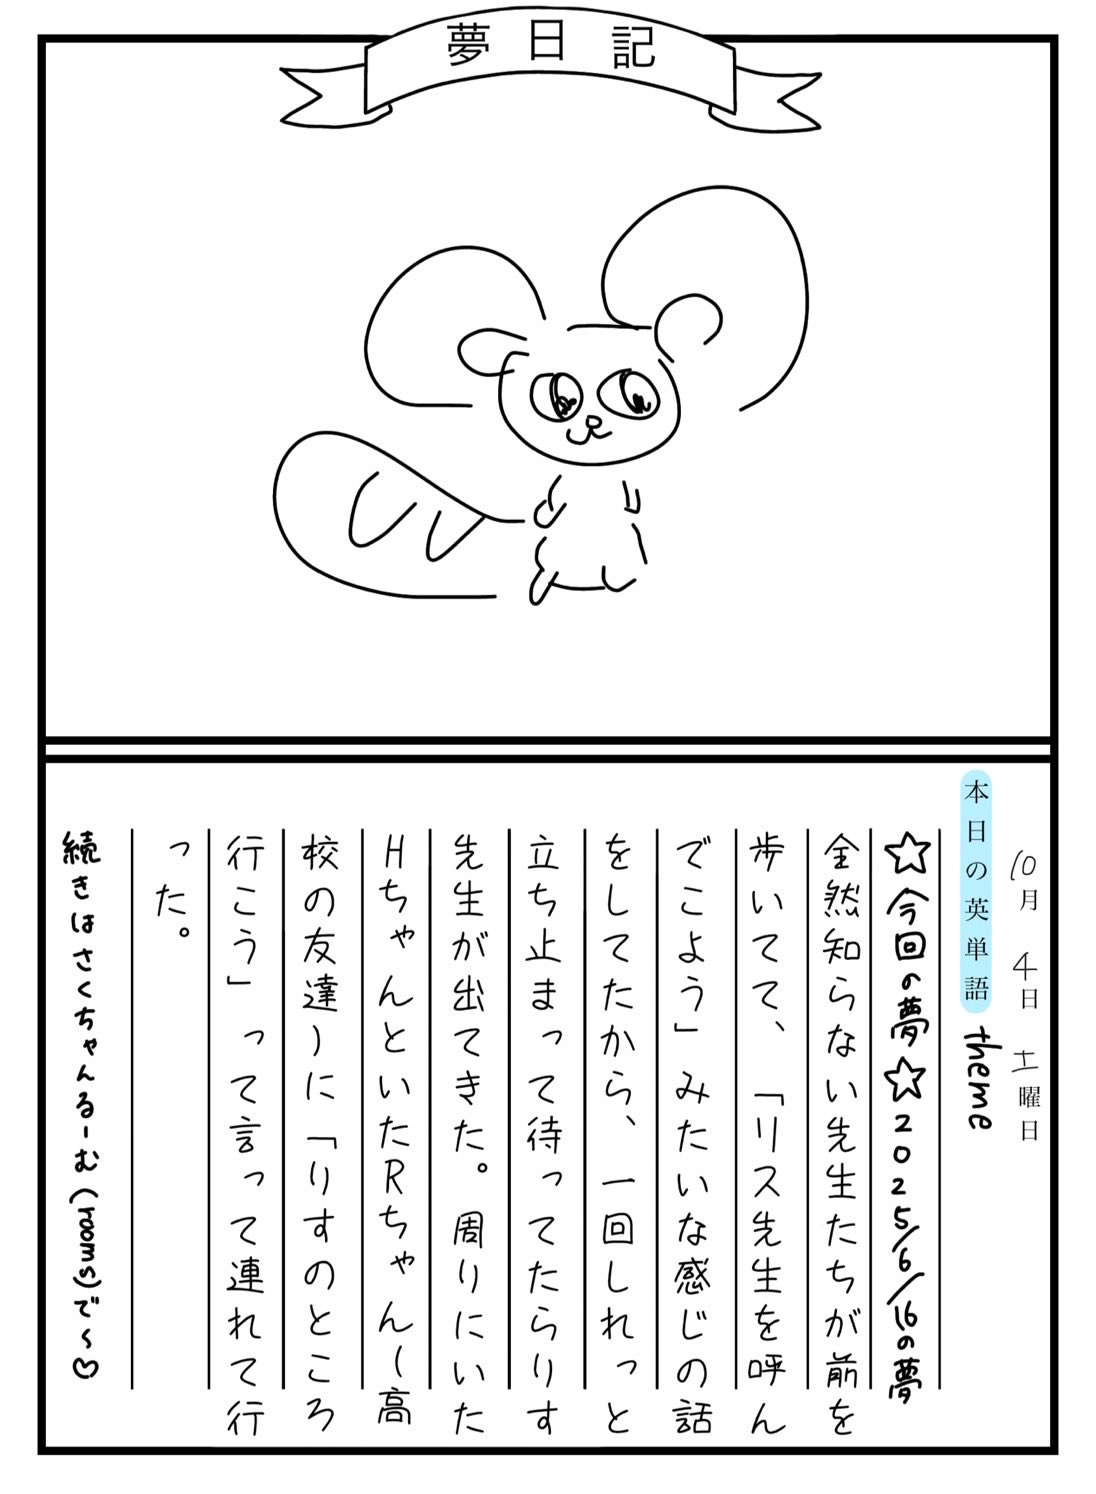 夢日記
10月 4日 土曜日
本日の英単語 theme
☆今回の夢☆2025/6/16の夢
全然知らない先生たちが前を
歩いてて、「リス先生を呼ん
でこよう」みたいな感じの話
をしてたから、一回しれっと
立ち止まって待ってたらりす
先生が出てきた。周りにいた
HちゃんといたRちゃん(高
校の友達)に「りすのところ
行こう」って言って連れて行
った。
続きはさくちゃんるーむ(rooms)で〜♡